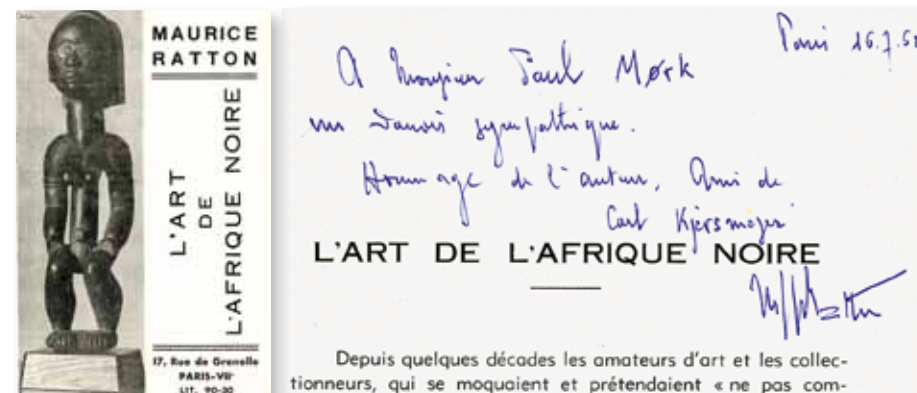 MAURICE
RATTON
L'ART
DE
L'AFRIQUE NOIRE
17, Rue de Grenelle
PARIS-VIIᵉ
LIT. 90-20
Paris 16.7.5
A Monsieur Paul Mørk
un Danois sympathique.
Hommage de l'auteur, Ami de
Carl Kjersmeier
L'ART DE L'AFRIQUE NOIRE
Depuis quelques décades les amateurs d'art et les collec-
tionneurs, qui se moquaient et prétendaient « ne pas com-